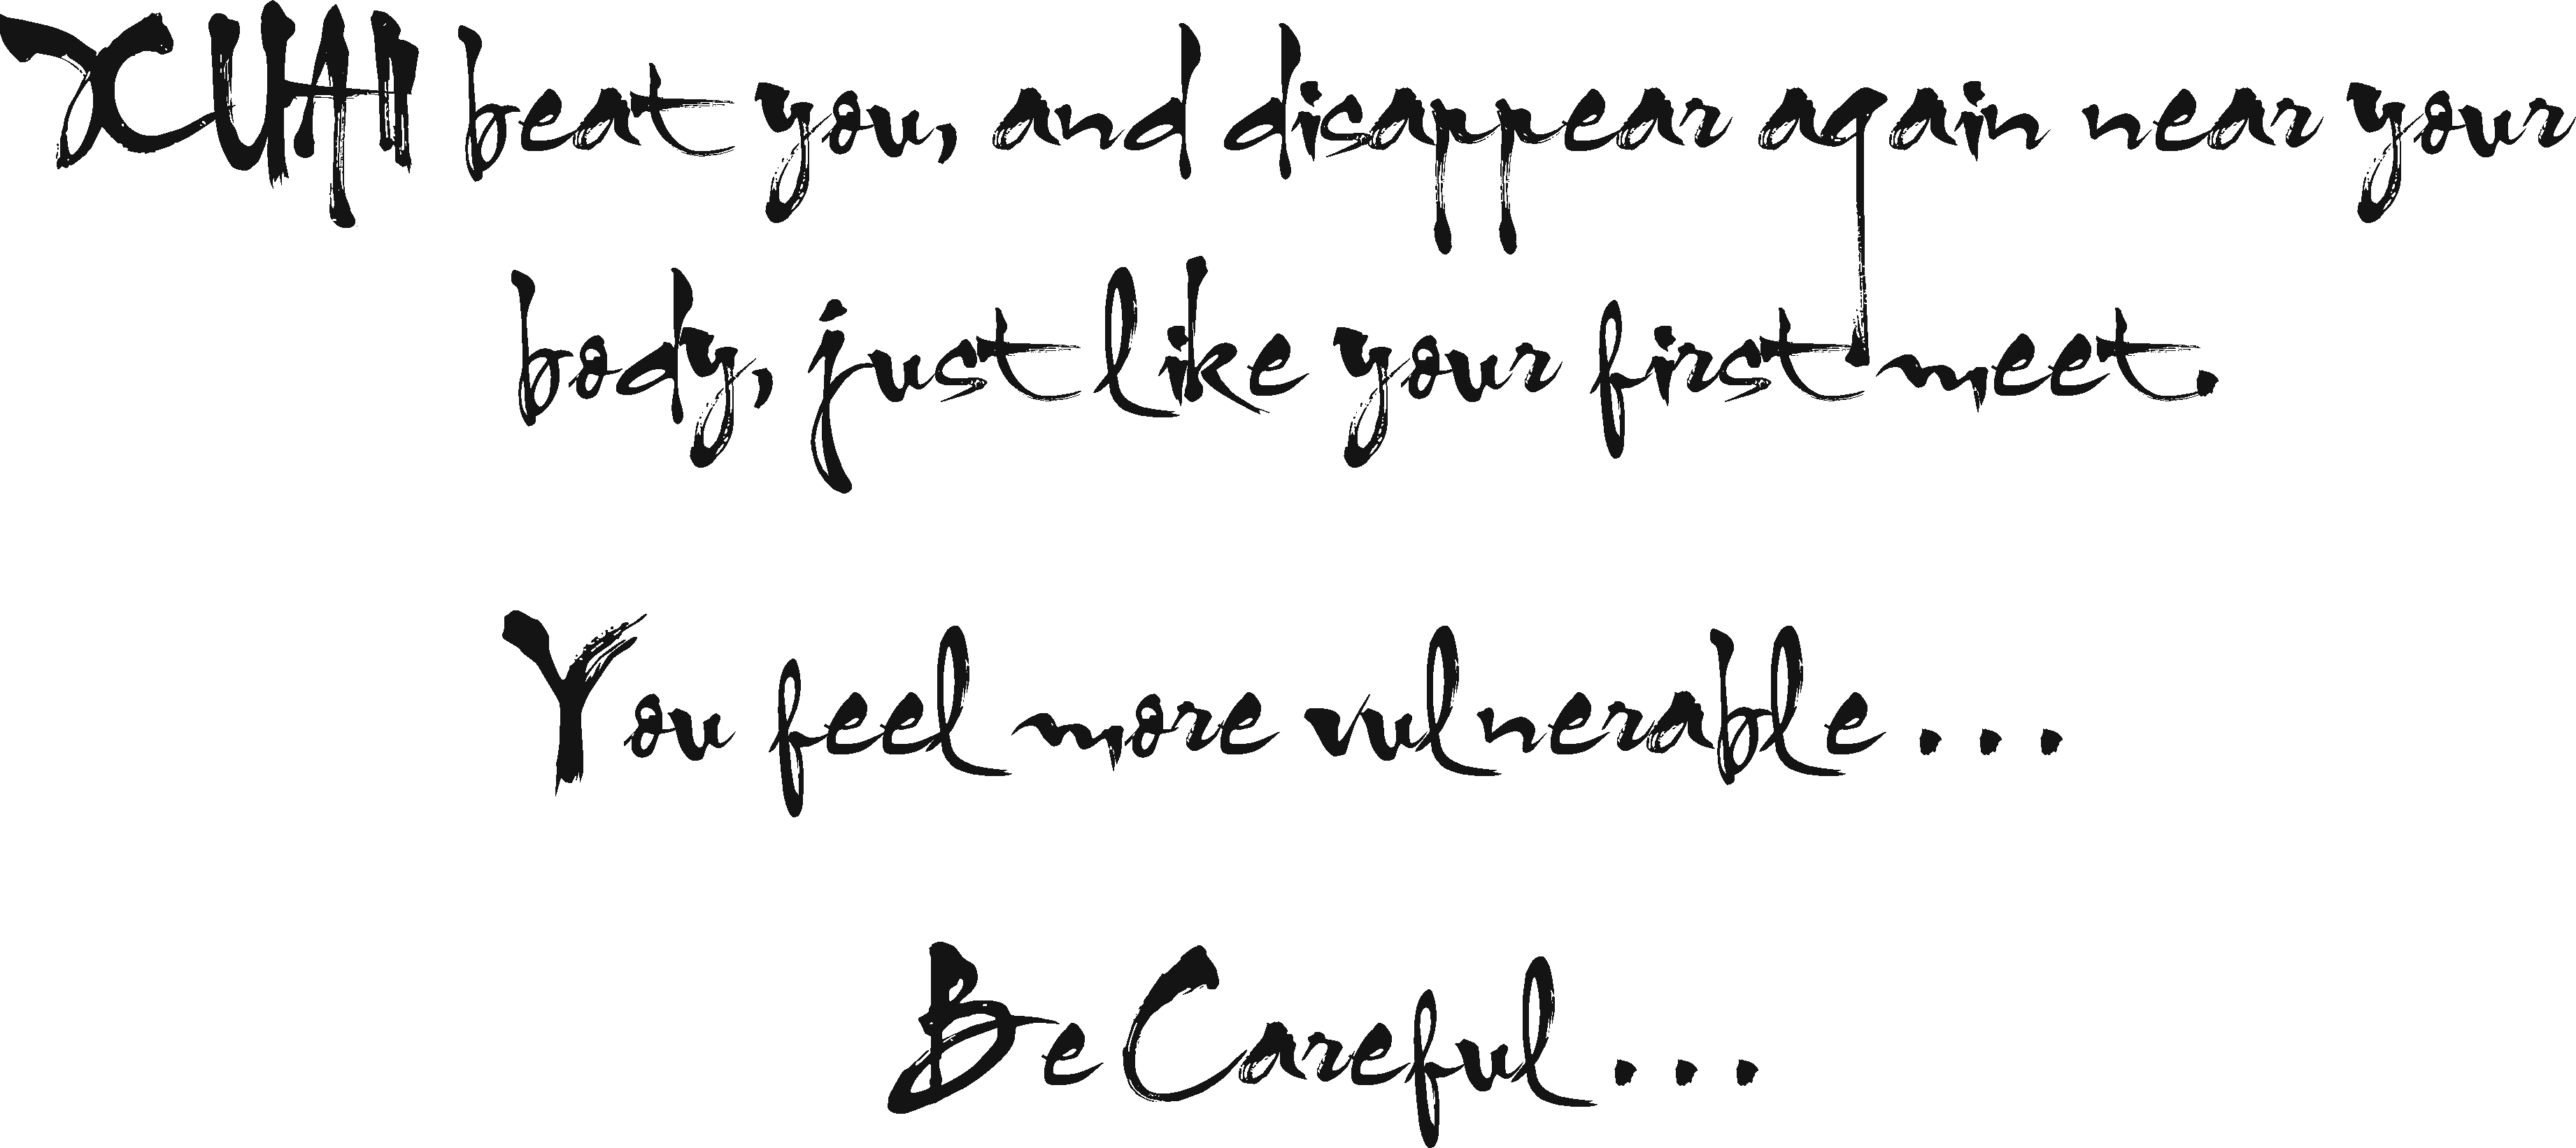 XUAN beat you, and disappear again near your
body, just like your first meet.
You feel more vulnerable...
Be Careful...